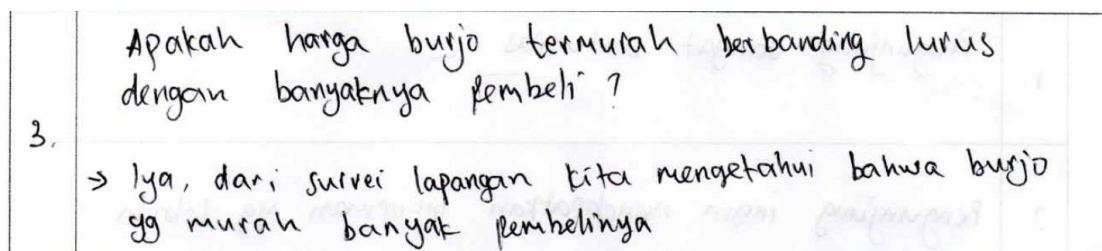 Apakah harga burjo termurah berbanding lurus
dengan banyaknya pembeli ?
3.
→ Iya, dari survei lapangan kita mengetahui bahwa burjo
yg murah banyak pembelinya